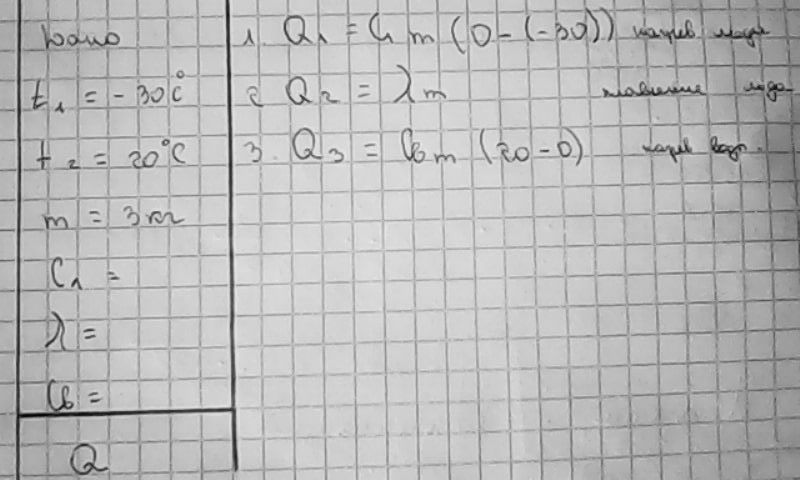 Дано
t₁ = -30°C
t₂ = 20°C
m = 3кг
C₁ =
λ =
Cв =
Q
1. Q₁ = C₁ m (0-(-30)) нагрев льда
2 Q₂ = λm плавление льда
3. Q₃ = Cв m (20-0) нагрев воды.